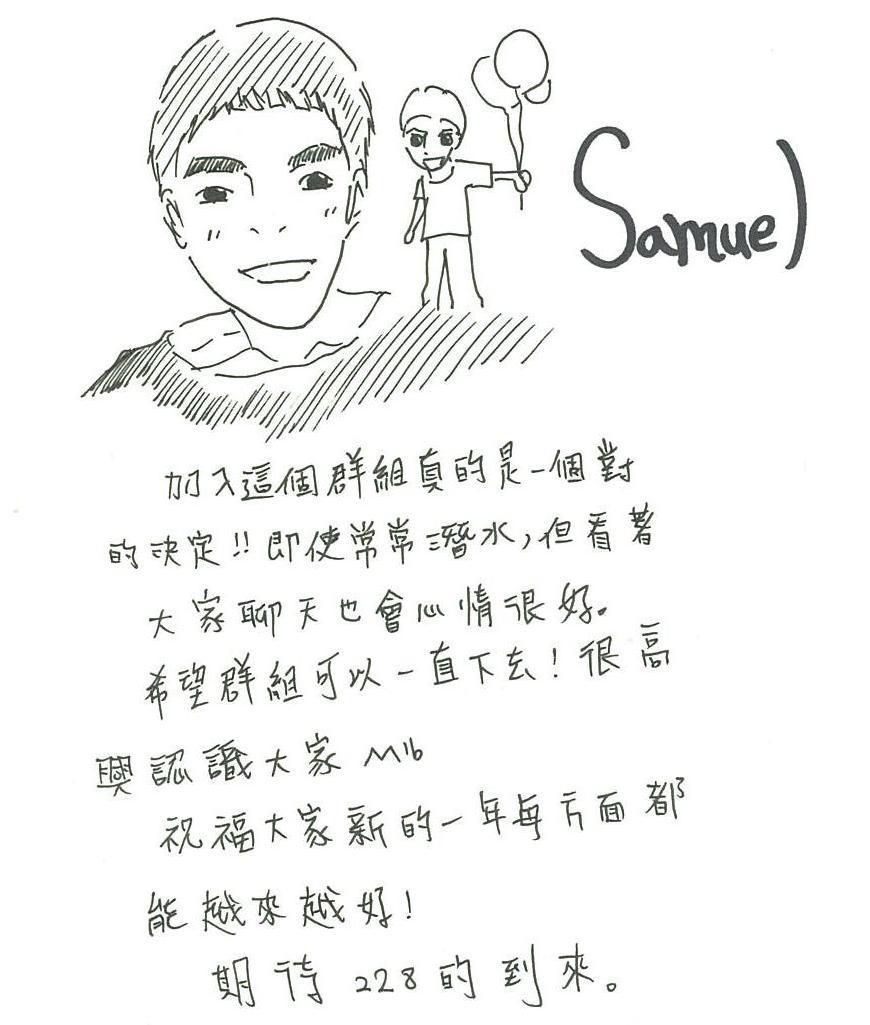 Samuel
加入這個群組真的是一個對
的決定!! 即使常常潛水,但看著
大家聊天也會心情很好。
希望群組可以一直下去! 很高
興認識大家
祝福大家新的一年每方面都
能越來越好!
期待228的到來。